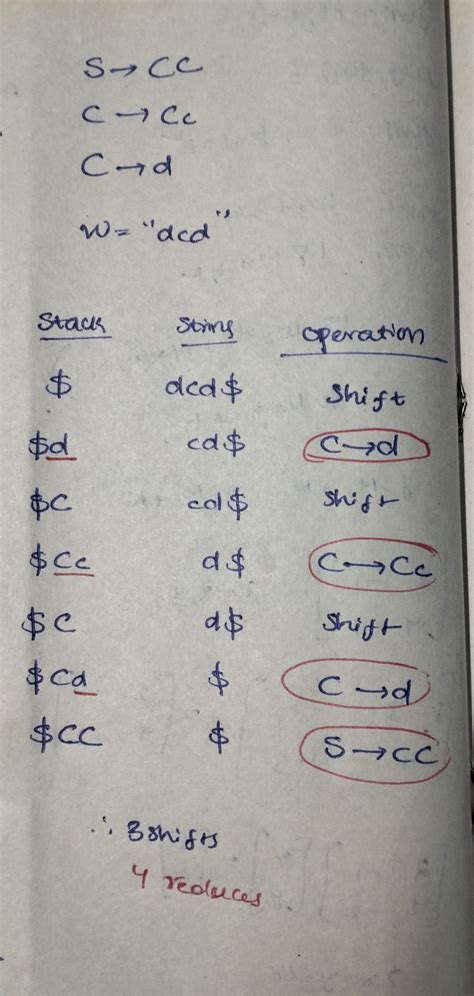 S → CC
C → Cc
C → d
W = "dcd"
Stack String Operation
$ dcd$ Shift
$d cd$ C → d
$C cd$ Shift
$Cc d$ C → Cc
$C d$ Shift
$Cd $ C → d
$CC $ S → CC
∴ 3 shifts
4 reduces